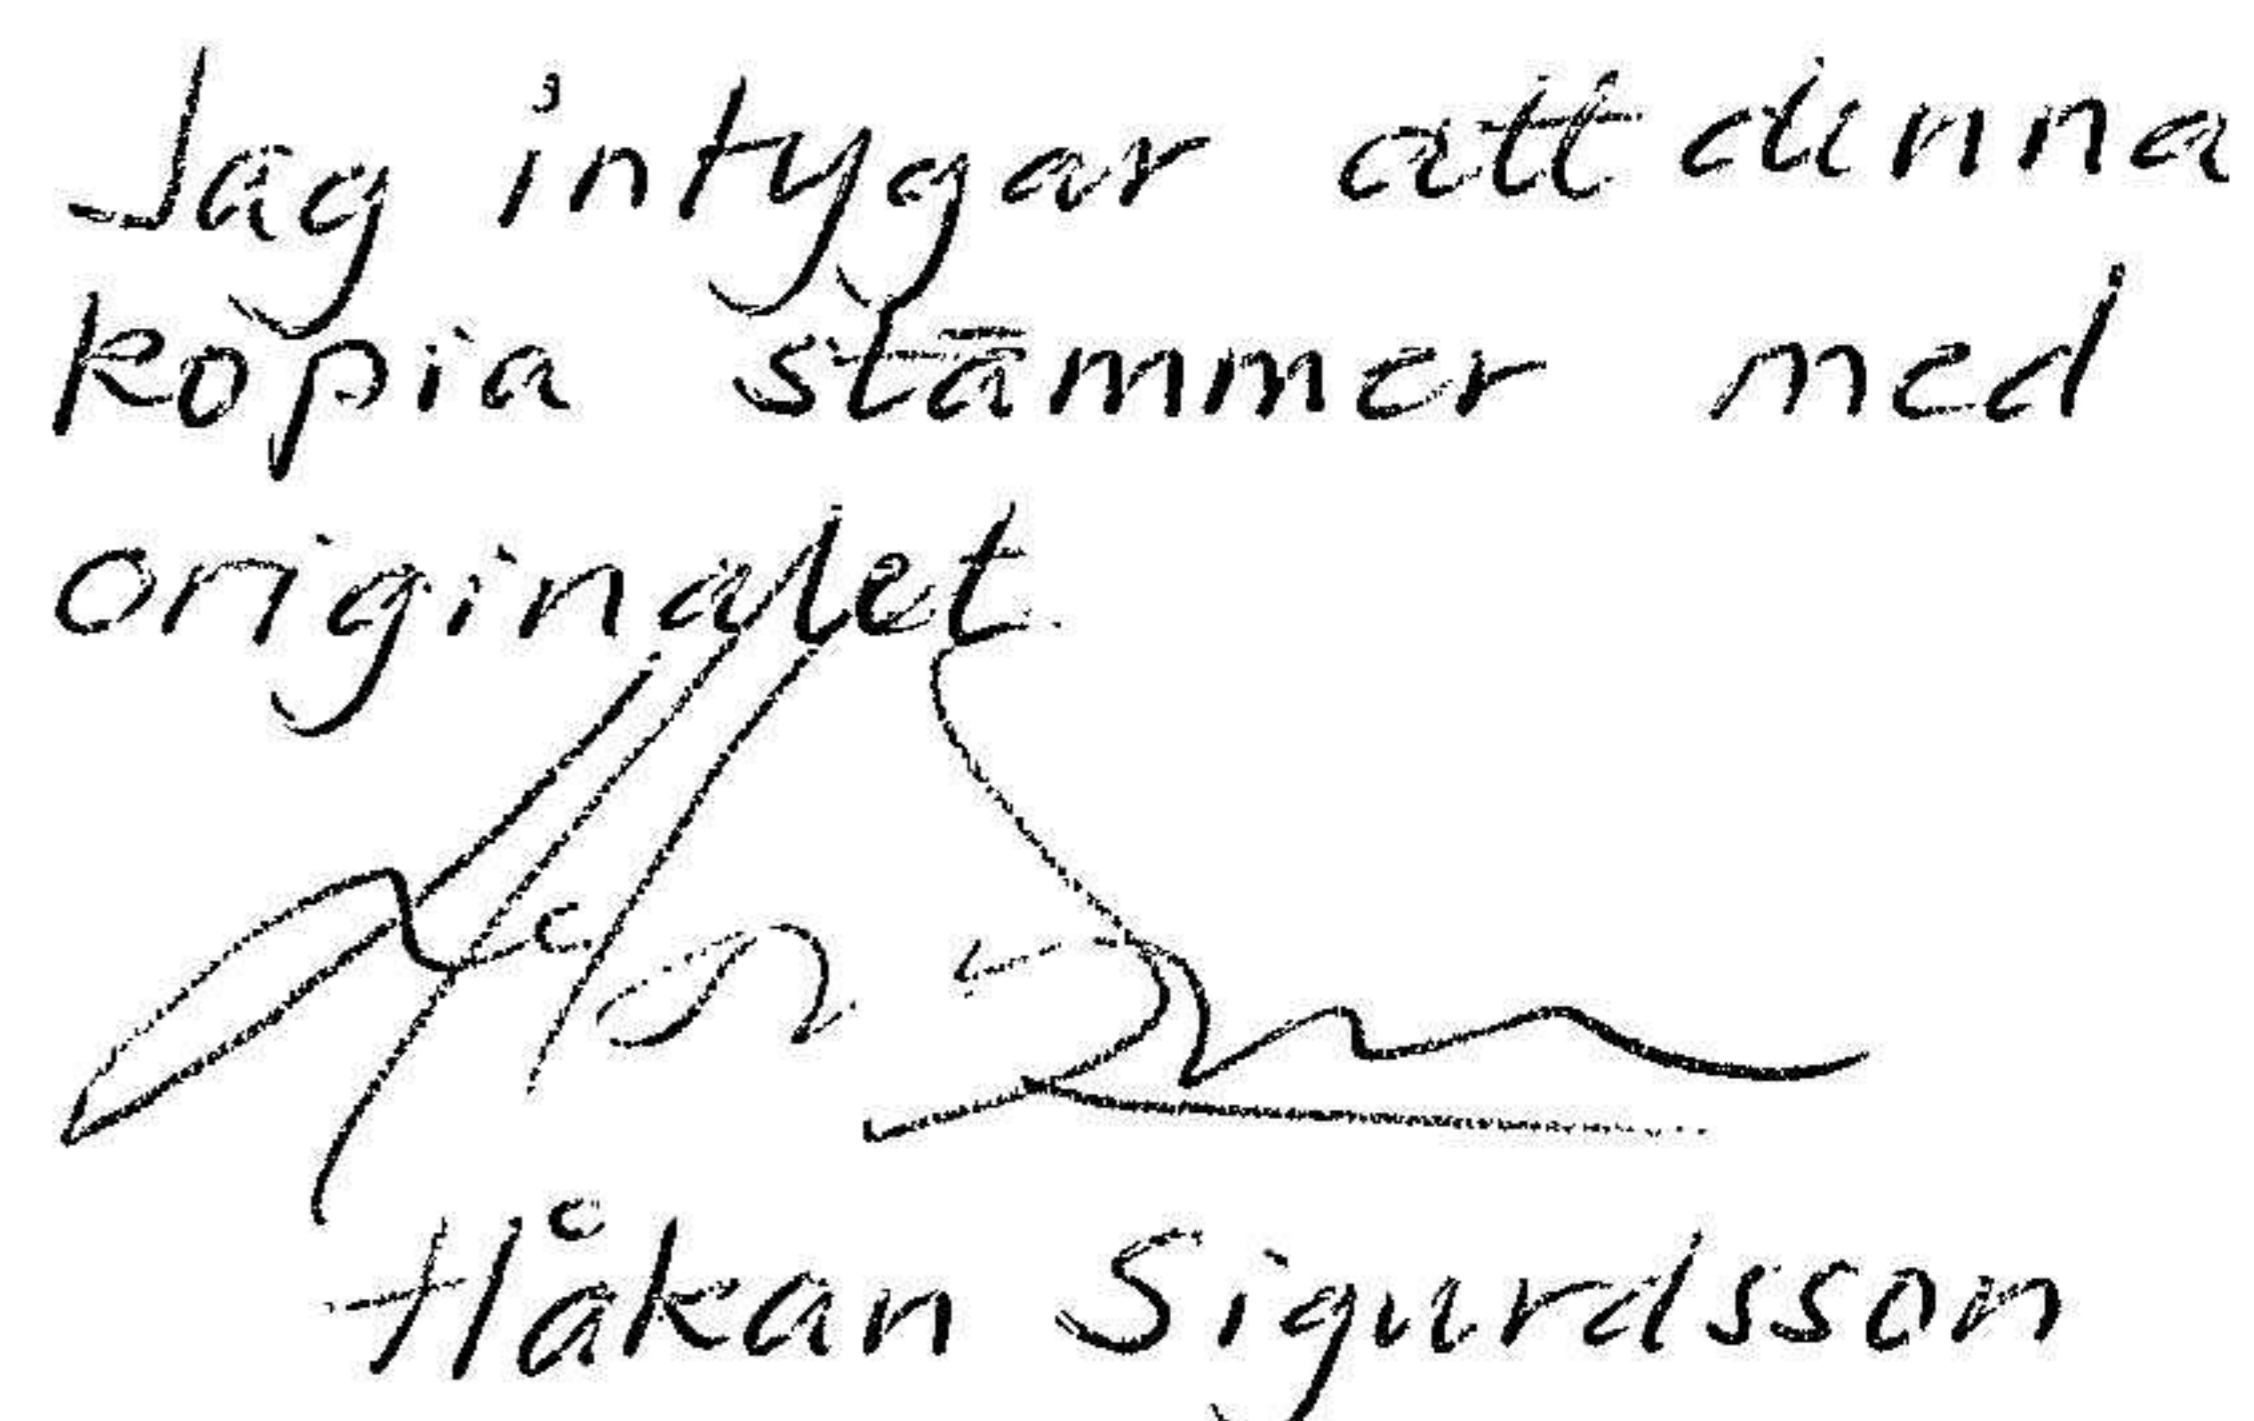 Jag intygar att denna
kopia stämmer med
originalet.
Håkan Sigurdsson